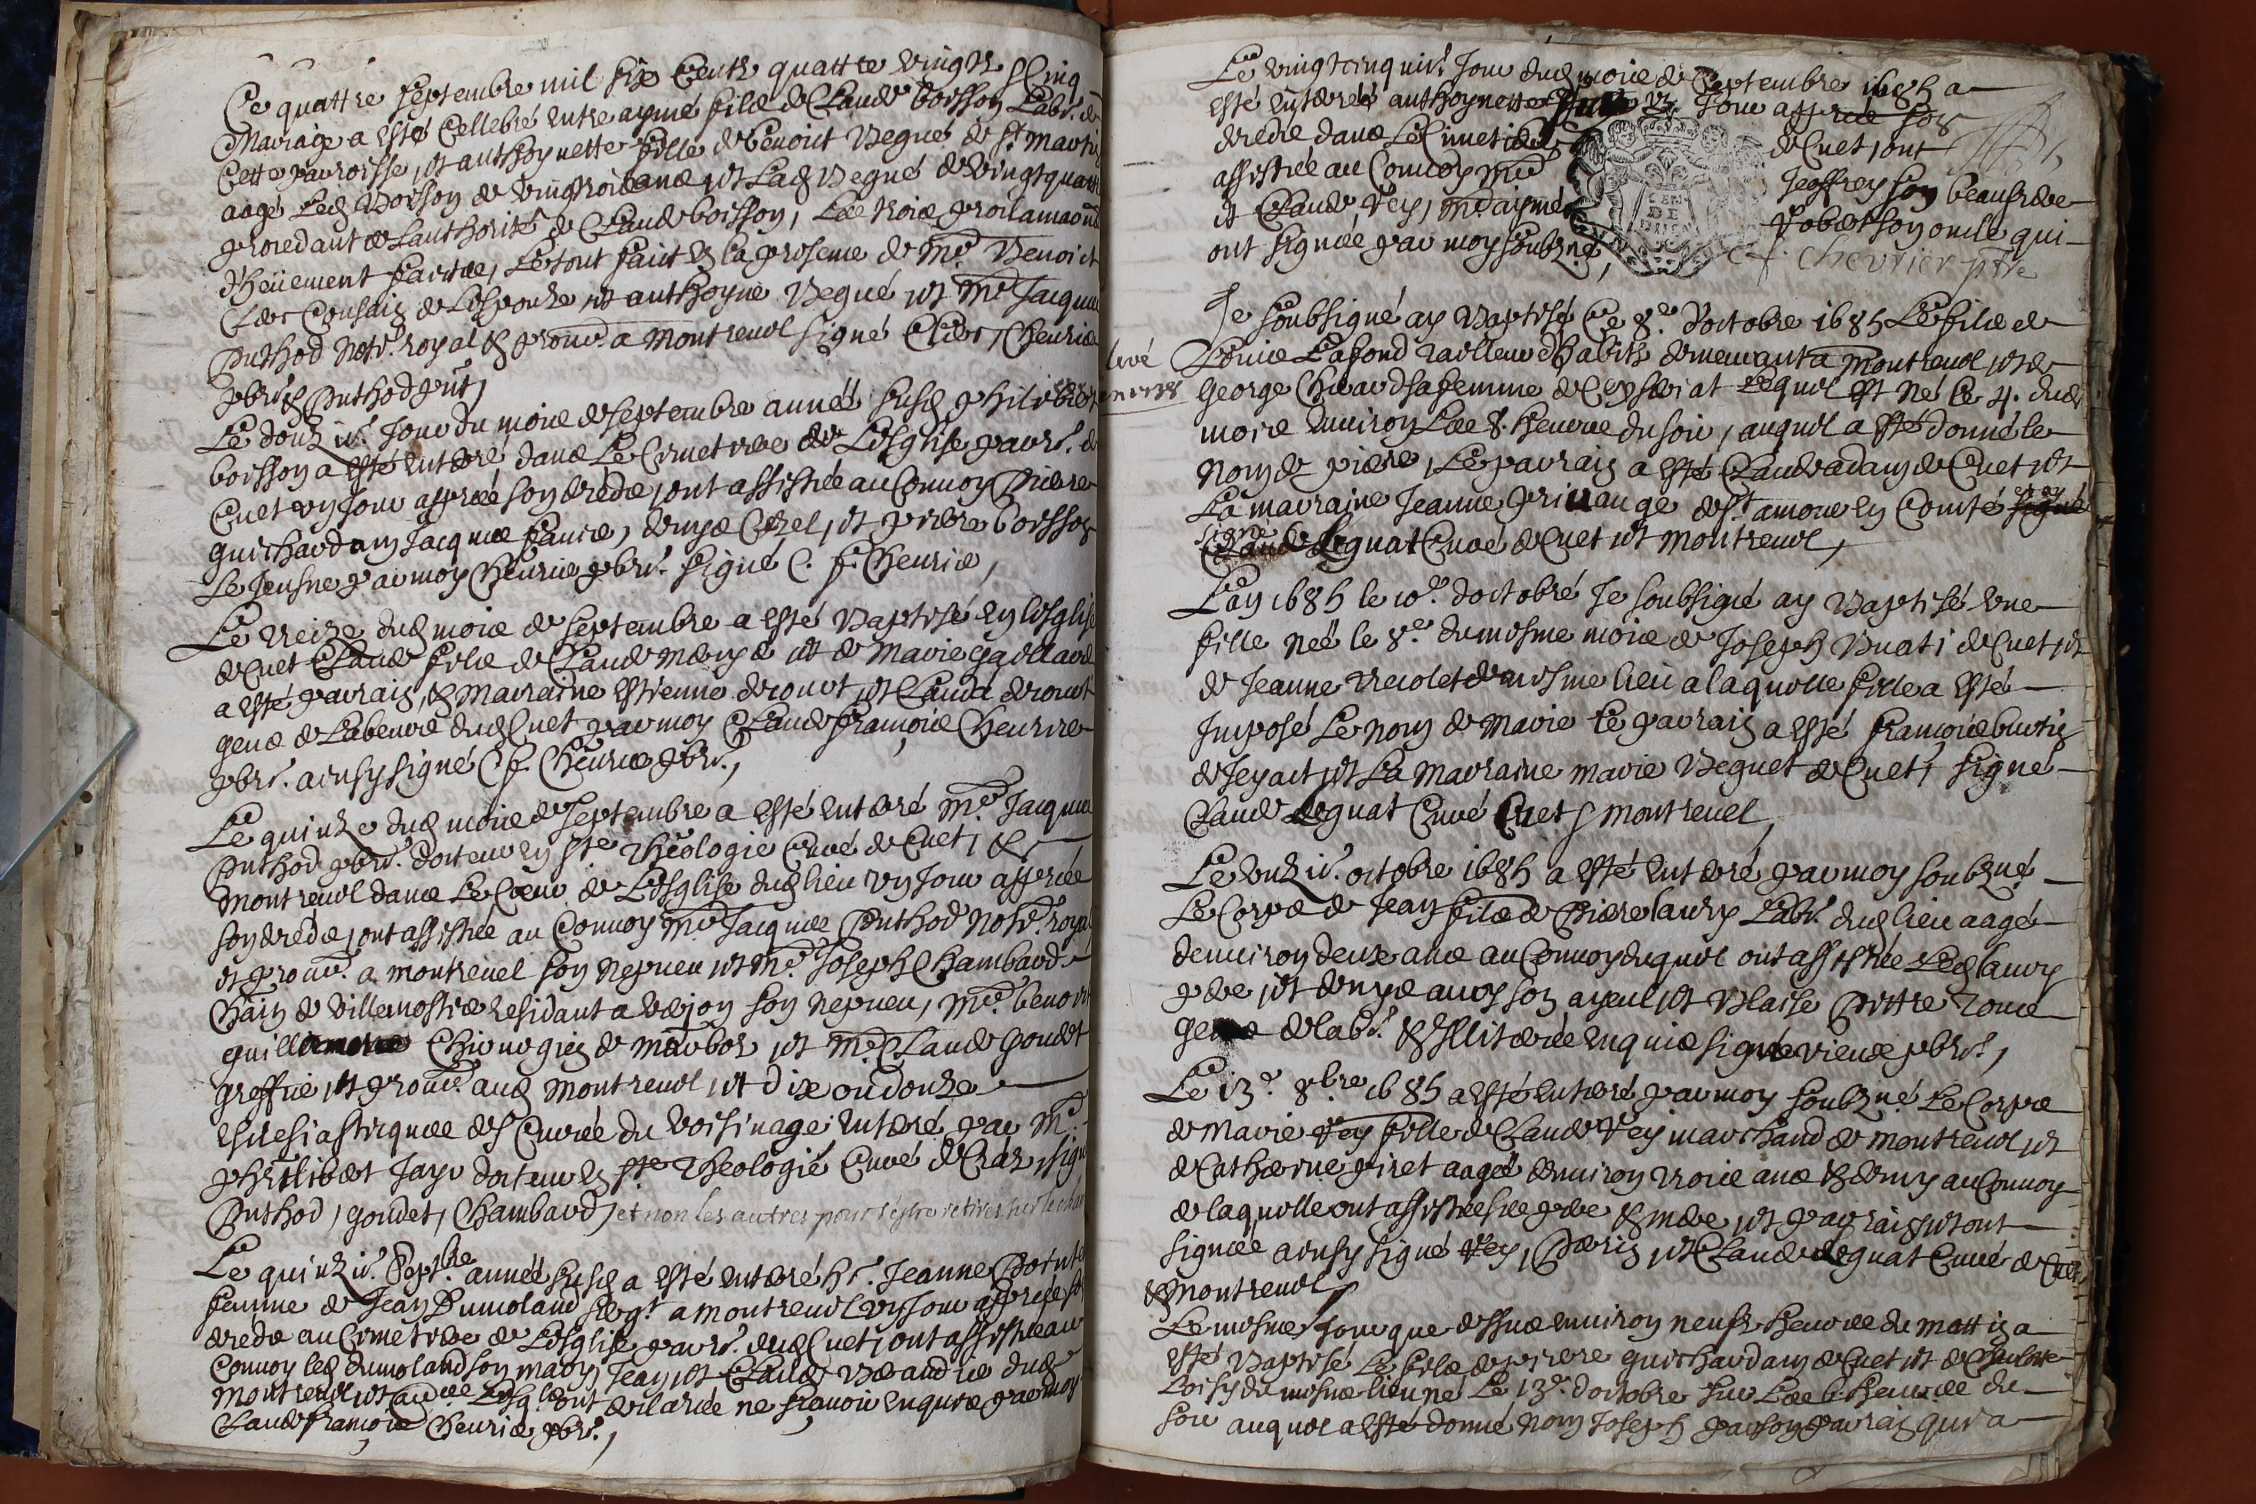 Ce quattre septembre mil six Cents quattre vingts & Cinq
Mariage a esté Cellebré entre aymé filz de Claude boisson Labr. de
Cette parroisse, et anthoynette fille de benoict Begue de St. Martin
aagé Led. Boisson de vingtrois ans et Lad. Begué de vingtquatre
procedant de Lauthorité de Claude boisson, Les trois proclamaons
dheuement faictes, Le tout faict en la presence de Me. Benoict
Clerc de et anthoyne Begué et Me. Jacques
Puthod Notr. royal & procur. a Montreuel signé Clerc, Chevrier
pbr. & Puthod put,
Le douzie. Jour du mois de septembre année susd. philibert
boisson a esté enterré dans Le Cimetiere de Lesglise parr. de
Cuet un Jour apprés son deceds, ont assistées au Convoy Pierre
guichardan Jacques faure, denys Curel, et pierre boisson
Le Jeusne par moy Chevrier pbr. signé C. f. Chevrier,
Le treize dud. mois de septembre a esté Baptisé en lesglise
de Cuet Claude filz de Claude et de Marie gaillard
a esté parrain, & marraine Estienne et Clauda
gens de Labeure dud. Cuet par moy Claude françois Chevrier
pbr. ainsy signé C. f. Chevrier pbr.,
Le quinze dud. mois de septembre a esté enterré Me. Jacques
Puthod pbr. docteur en ste. theologie Curé de Cuet, &
Montreuel dans Le Coeur de Lesglise dud. lieu un Jour apprés
son deceds, ont assistés au Convoy Me. Jacques Puthod Notr. royal
et procur. a montreuel son nepueu et Me. Joseph Chambard
de residant a son nepueu, Me. benoict
Chirurgien de marbos et Me. Claude goudet
greffier et procur. aud. Montreuel et dix ou douze
Ecclesiastiques et Curés du voisinage enterré par Me.
philibert Jayr docteur en ste. theologie Curé de Cras, signé
Puthod, goudet, Chambard, et non les autres pour s'estre retirés
Le quinzie. Septbre. année susd. a esté enterré hte. Jeanne
femme de Jean Dumoland sergt. a montreuel un Jour apprés son
deceds au Cimetiere de Lesglise parr. dud. Cuet, ont assistés au
Convoy led. dumoland son mary, Jean et Claude dud.
Montreuel et ont declarés ne scavoir enquis par moy
Claude françois Chevrier pbr.,
Le vingtcinquie. Jour dud. mois de Septembre 1685 a
esté enterrée anthoynette un Jour apprés son
deceds dans Le Cimetiere de Cuet, ont
assistés au Convoy Me. Jeoffrey son beaufrere
et Claude Vey, Me. aymé Robet son oncle qui
ont signés par moy soubzné, C f. Chevrier ptre
Je soubsigné ay Baptisé Ce 8e. doctobre 1685 Le filz de
Louis Lafond tailleur dhabits demeurant a Montreuel et de
george Chicard sa femme de Ceyseriat Lequel est né le 4. dud.
mois environ Les 8. heures du soir, auquel a esté donné le
nom de pierre, Le parrain a esté Claude adam de Cuet et
La marraine Jeanne de St. amour en Comté signé
signé
Claude Leguat Curé de Cuet et Montreuel,
livé
Lan 1685 le 10e. doctobre Je soubsigné ay Baptisé une
fille née le 8e. du mesme mois de Joseph Buati de Cuet et
de Jeanne du mesme lieu a laquelle fille a esté
Imposé Le nom de Marie Le parrain a esté françois
de Jeyact et La marraine marie Beguet de Cuet, signé
Claude Leguat Curé Cuet & Montreuel,
Le unzie. octobre 1685 a esté enterré par moy soubzné
Le Corps de Jean filz de Pierre Laury Labr. dud. lieu aagé
denviron deux ans au Convoy duquel ont assistés Led. Laury
pere et denys aury son ayeul et Blaise Pittre tous
gens de lab. & Illiterés enquis signé pbr.,
Le 13e. 8bre. 1685 a esté enterré par moy soubzné Le Corps
de Marie Vey fille de Claude Vey marchand de montreuel et
de Catherine piret aagée denviron trois ans & demy au Convoy
de laquelle ont assistés ses pere & mere et parrain et ont
signés ainsy signé Vey, Perrin et Claude Leguat Curé de Cuet
& Montreuel,
Le mesme Jour que dessus environ neufz heures du mattin a
esté Baptisé Le filz de pierre guichardan de Cuet et de Charlotte
Loisy du mesme lieu né Le 13e. doctobre sur Les 6. heures du
soir auquel a esté donné nom Joseph par son parrain qui a